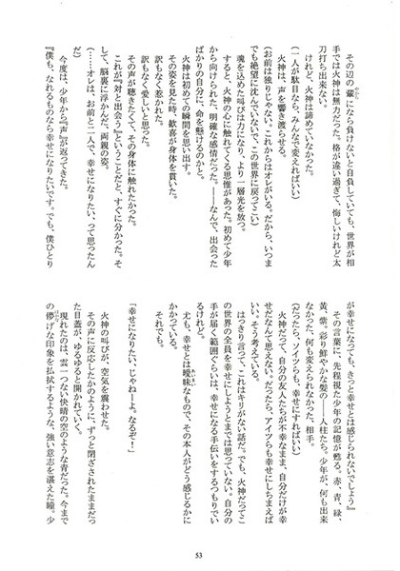 その辺の輩になら負けないと自負していても、世界が相
手では火神は無力だった。格が違い過ぎて、悔しいけれど太
刀打ち出来ない。
けれど、火神は諦めていなかった。
(一人が駄目なら、みんなで変えればいい)
火神は、声を響き渡らせる。
(お前は独りじゃない。これからはオレがいる。だから、いつま
でも絶望に沈んでいないで、この世界に戻ってこい)
魂を込めた叫びは力になり、より一層光を放つ。
すると、火神の心に触れてくる思惟があった。初めて少年
から向けられた、明確な感情だった。――なんで、出会った
ばかりの自分に、命を懸けるのかと。
火神は初めての瞬間を思い出す。
その姿を見た時、歓喜が身体を貫いた。
訳もなく惹かれた。
訳もなく愛しいと思った。
その声が聴きたくて、その身体に触れたかった。
これが『対と出会う』ということだと、すぐに分かった。そ
して、脳裏に浮かんだ、両親の姿。
(……オレは、お前と二人で、幸せになりたい、って思ったん
だ)
今度は、少年から『声』が返ってきた。
『僕も、なれるものなら幸せになりたいです。でも、僕ひとり
が幸せになっても、きっと幸せとは感じられないでしょう』
その言葉に、先程視た少年の記憶が甦る。赤、青、緑、
黄、紫、彩り鮮やかな髪の――人柱たち。少年が、何も出来
なかった、何も変えられなかった、相手。
(だったら、ソイツらも、幸せにすればいい)
火神だって、自分の友人たちが不幸なまま、自分だけが幸
せだなんて思えない。だったら、アイツらも幸せにしちまえば
いい。そう考えている。
はっきり言って、これはキリがない話だ。でも、火神だってこ
の世界の全員を幸せにしようとまでは思っていない。自分の
手が届く範囲ぐらいは、幸せになる手伝いをするつもりでい
るけれど。
尤も、幸せとは曖昧なもので、その本人がどう感じるかに
かかっている。
それでも。
「幸せになりたい、じゃねーよ。なるぞ！」
火神の叫びが、空気を震わせた。
その声に反応したかのように、ずっと閉ざされたままだっ
た目蓋が、ゆるゆると開かれていく。
現れたのは、雲一つない快晴の空のような青だった。今まで
の儚げな印象を払拭するような、強い意志を湛えた瞳。少
53